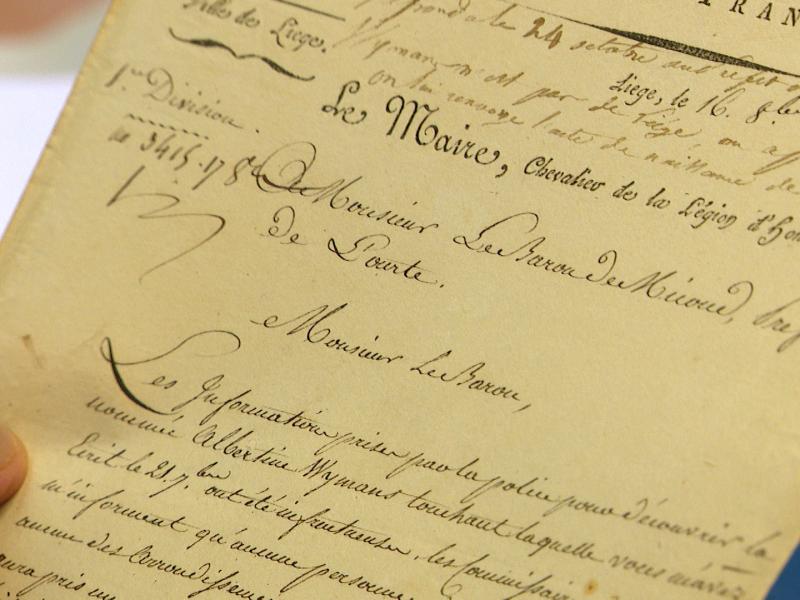 FRAN
Ville de Liege.
Répondu le 24 octobre
Wymans n'est pas de Liège, on a
on lui renvoye l'acte de naissance de
Liege, le 16. 8bre
1ere Division.
n° 3415.178
Le Maire, Chevalier de la Légion d'Hon
A Monsieur Le Baron De Micoud, Préf
de L'ourte.
Monsieur Le Baron,
Les Informations prises par la police pour découvrir la
nommée Albertine Wymans touchant laquelle vous m'avez
Ecrit le 21. 7.bre ont été infructueuses, les Commissaires
m'informent qu'aucune personne
aucun des Arrondissemen
aura pris un